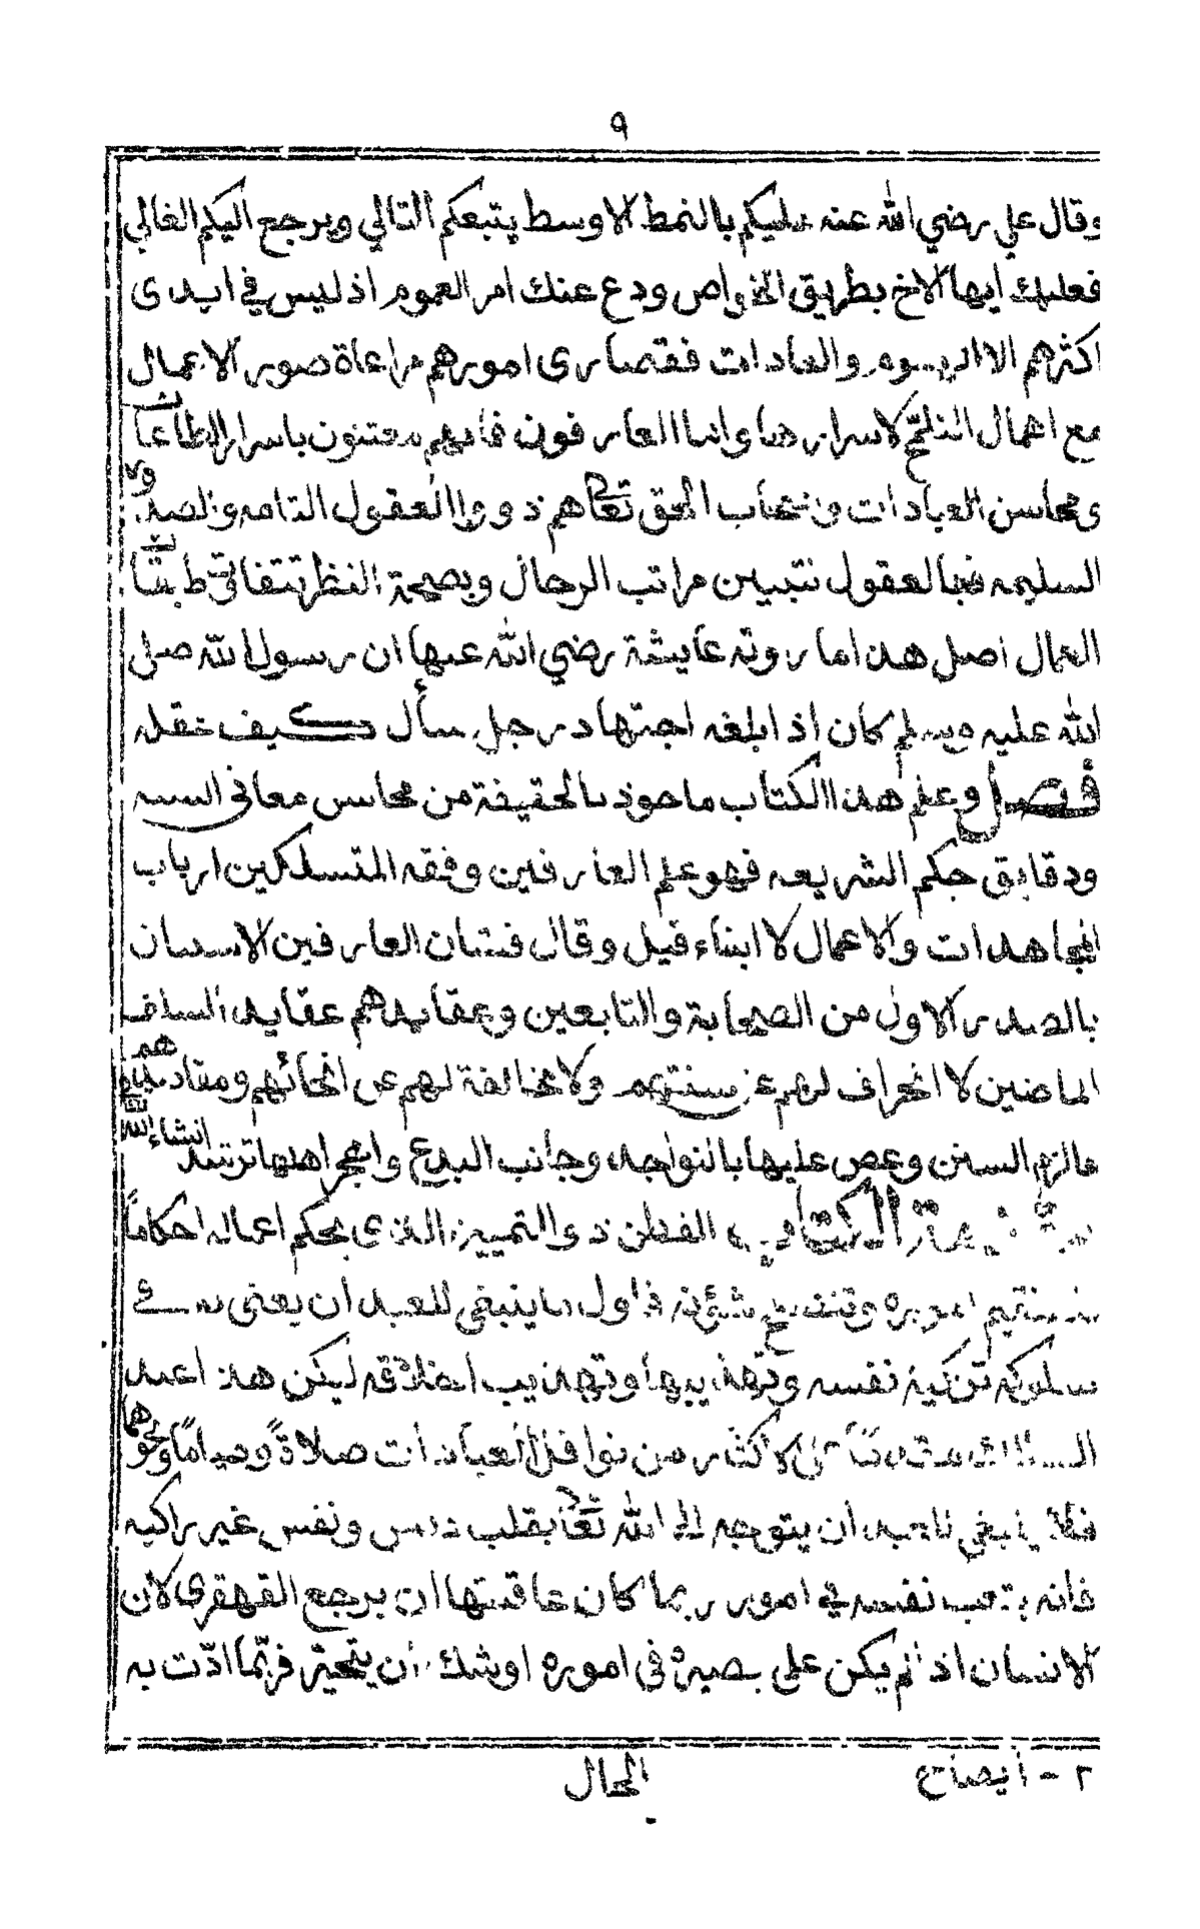 ٩
وقال علي رضي الله عنه عليكم بالنمط الاوسط يتبعكم التالي ويرجع اليكم الغالي
فعليك ايها الاخ بطريق الخواص ودع عنك امر العموم اذ ليس في ايدى
اكثرهم الا الرسوم والعادات فقصارى امورهم مراعاة صور الاعمال
مع اهمال التلمح لاسرارها وانما العارفون فانهم معتنون باسرار الطاعات
ومحاسن العبادات واحباب الحق تعالى هم ذووا العقول التامه والصدور
السليمه فبالعقول تتبين مراتب الرجال وبصحة النظر تتفاوت طبقات
العمال اصل هذا ما روته عايشة رضي الله عنها ان رسول الله صلى
الله عليه وسلم كان إذا بلغه اجتهاد رجل سأل كيف عقله
فصل وعلم هذا الكتاب ماخوذ بالحقيقة من محاسن معاني السنه
ودقايق حكم الشريعه فهو علم العارفين وفقه المتسلكين ارباب
المجاهدات والاعمال لا ابناء قيل وقال فشان العارفين الاستنان
بالصدر الاول من الصحابة والتابعين وعقايدهم عقايد السلف
الماضين لا انحراف لهم عن سنتهم ولا مخالفة لهم عن انحائهم ومقاصدهم
فالزم السنن وعض عليها بالنواجد وجانب البدع واهجر اهلها ترشد انشاء الله
الكتاب الفطن ذو التمييز الذى يحكم اعماله احكاماً
اموره شؤنه فاول ما ينبغي للعبد ان يعتنى به في
سلوكه تزكية نفسه وتهذيبها وتهذيب اخلاقه ليكن هذا عند
على الاكثار من نوافل العبادات صلاةً وصياماً ونحوهما
فلا ينبغي للعبد ان يتوجه الى الله تعالى بقلب دنس ونفس غير زاكيه
فانه يتعب نفسه في امور ربما كان عاقبتها ان يرجع القهقرى لان
الانسان اذا لم يكن على بصيره في اموره اوشك ان يتحير فربّما ادّت به
٢ - أيضاح
الحال